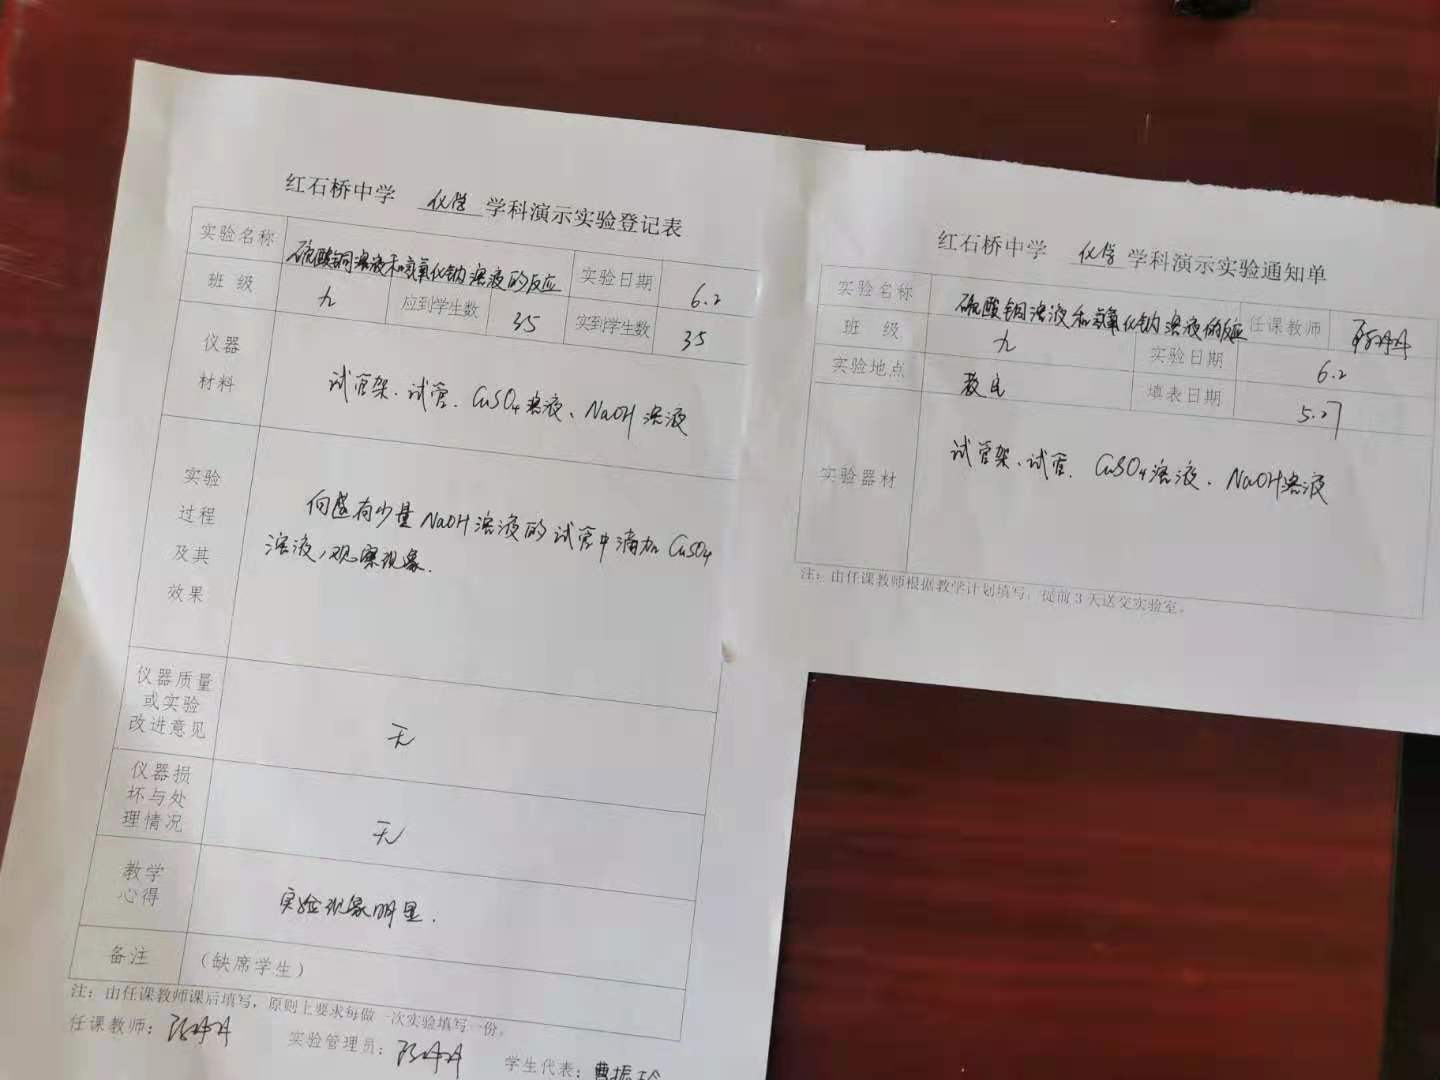 红石桥中学 化学 学科演示实验登记表
实验名称 硫酸铜溶液和氢氧化钠溶液的反应 实验日期 6.2
班 级 九 应到学生数 35 实到学生数 35
仪器
材料
试管架、试管、CuSO4溶液、NaOH溶液
实验
过程
及其
效果
向盛有少量NaOH溶液的试管中滴加CuSO4
溶液,观察现象.
仪器质量
或实验
改进意见
无
仪器损
坏与处
理情况
无
教学
心得
实验现象明显.
备注 (缺席学生)
注:由任课教师课后填写,原则上要求每做一次实验填写一份。
任课教师: 实验管理员: 学生代表:曹振玲
红石桥中学 化学 学科演示实验通知单
实验名称 硫酸铜溶液和氢氧化钠溶液的反应 任课教师
班 级 九 实验日期 6.2
实验地点 教室 填表日期 5.27
实验器材 试管架、试管、CuSO4溶液、NaOH溶液
注:由任课教师根据教学计划填写,提前3天送交实验室。